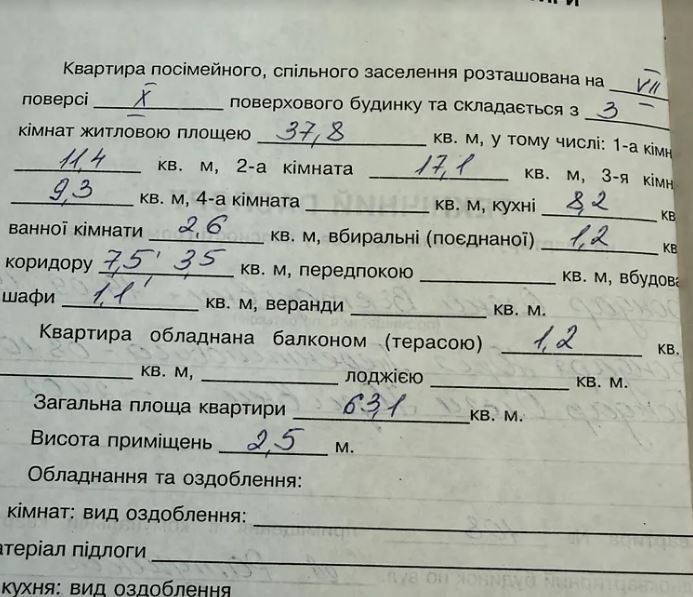 Квартира посімейного, спільного заселення розташована на VII
поверсі X поверхового будинку та складається з 3
кімнат житловою площею 37,8 кв. м, у тому числі: 1-а кімн
11,4 кв. м, 2-а кімната 17,1 кв. м, 3-я кімн
9,3 кв. м, 4-а кімната кв. м, кухні 8,2 кв
ванної кімнати 2,6 кв. м, вбиральні (поєднаної) 1,2 кв
коридору 7,5 3,5 кв. м, передпокою кв. м, вбудова
шафи 1,1 кв. м, веранди кв. м.
Квартира обладнана балконом (терасою) 1,2 кв.
кв. м, лоджією кв. м.
Загальна площа квартири 63,1 кв. м.
Висота приміщень 2,5 м.
Обладнання та оздоблення:
кімнат: вид оздоблення:
атеріал підлоги
кухня: вид оздоблення